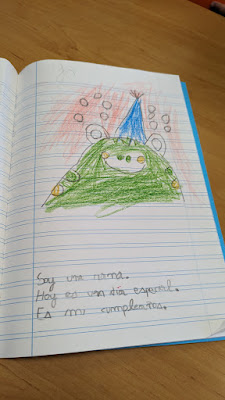 Soy una rana.
Hoy es un día especial.
Es mi cumpleaños.